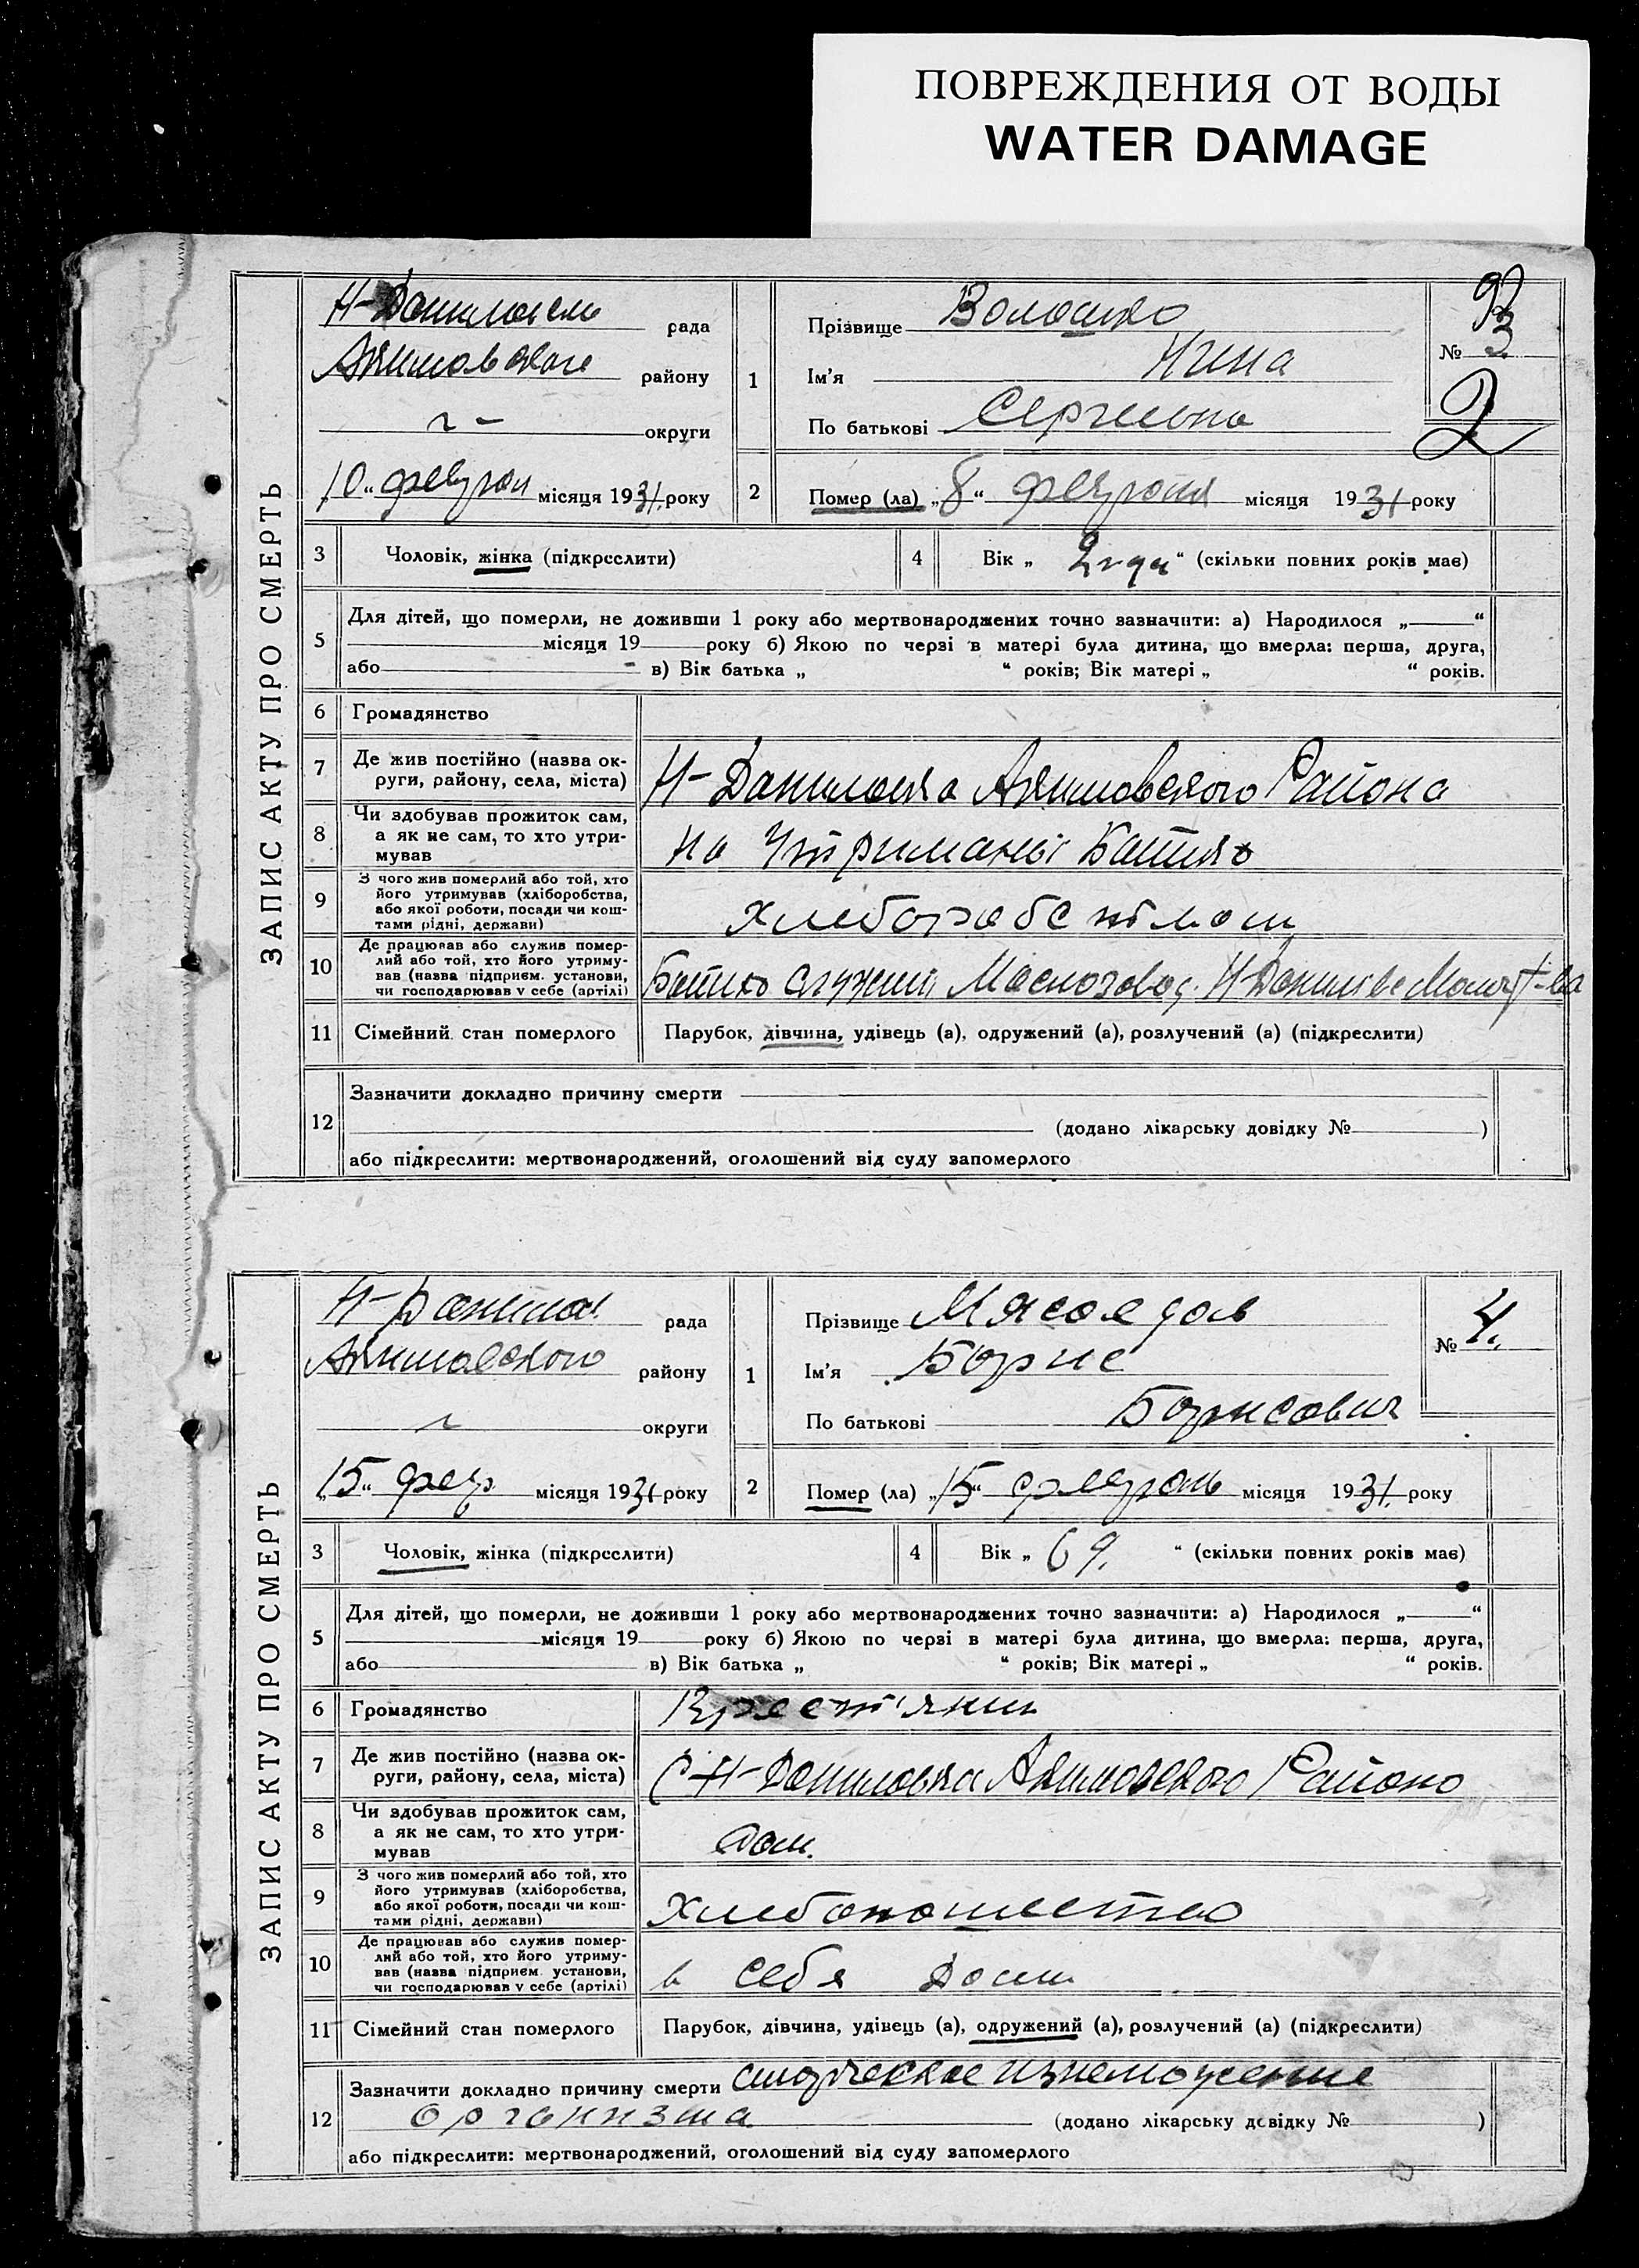 ПОВРЕЖДЕНИЯ ОТ ВОДЫ
WATER DAMAGE
ЗАПИС АКТУ ПРО СМЕРТЬ
рада
району
округи
„10“ феврал місяця 1931 року
1
Прізвище Волошко
Ім'я Нина
По батькові
№ 3
2
2
Помер (ла) „8“ февраля місяця 1931 року
3 Чоловік, жінка (підкреслити)
4 Вік „ 2 года “ (скільки повних років має)
5 Для дітей, що померли, не доживши 1 року або мертвонароджених точно зазначити: а) Народилося „ “
місяця 19 року б) Якою по черзі в матері була дитина, що вмерла: перша, друга,
або в) Вік батька „ “ років; Вік матері „ “ років.
6 Громадянство
7 Де жив постійно (назва ок-
руги, району, села, міста)
Н-Даниловка Акимовского Района
8 Чи здобував прожиток сам,
а як не сам, то хто утри-
мував
на Утриманьі Батько
9 З чого жив померлий або той, хто
його утримував (хліборобства,
або якої роботи, посади чи кош-
тами рідні, держави)
10 Де працював або служив помер-
лий або той, хто його утриму-
вав (назва підприєм. установи,
чи господарював у себе (артілі)
Батько служит Маслозавод Н-Данилов
11 Сімейний стан померлого
Парубок, дівчина, удівець (а), одружений (а), розлучений (а) (підкреслити)
12 Зазначити докладно причину смерти
(додано лікарську довідку № )
або підкреслити: мертвонароджений, оголошений від суду запомерлого
ЗАПИС АКТУ ПРО СМЕРТЬ
Н-Данилов рада
Акимовского району
округи
„15“ февр місяця 1931 року
1
Прізвище Мясоедов
Ім'я Борис
По батькові Борисович
№ 4.
2
Помер (ла) „15“ февраль місяця 1931. року
3 Чоловік, жінка (підкреслити)
4 Вік „ 69. “ (скільки повних років має)
5 Для дітей, що померли, не доживши 1 року або мертвонароджених точно зазначити: а) Народилося „ “
місяця 19 року б) Якою по черзі в матері була дитина, що вмерла: перша, друга,
або в) Вік батька „ “ років; Вік матері „ “ років.
6 Громадянство
Крест'янин
7 Де жив постійно (назва ок-
руги, району, села, міста)
С Н-Даниловка Акимовского Района
8 Чи здобував прожиток сам,
а як не сам, то хто утри-
мував
9 З чого жив померлий або той, хто
його утримував (хліборобства,
або якої роботи, посади чи кош-
тами рідні, держави)
10 Де працював або служив помер-
лий або той, хто його утриму-
вав (назва підприєм. установи,
чи господарював у себе (артілі)
в себя
11 Сімейний стан померлого
Парубок, дівчина, удівець (а), одружений (а), розлучений (а) (підкреслити)
12 Зазначити докладно причину смерти старческое изнеможение
организма (додано лікарську довідку № )
або підкреслити: мертвонароджений, оголошений від суду запомерлого